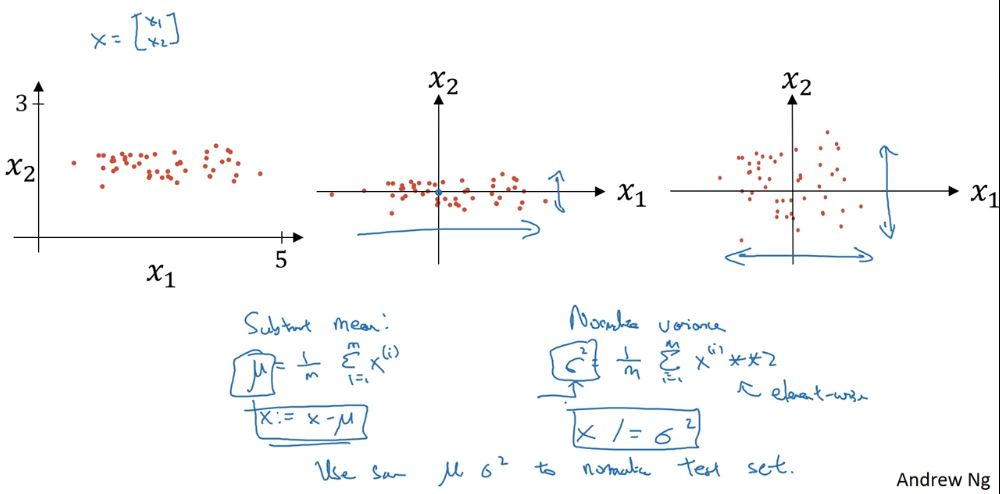 x = [x₁ x₂]
3
x₂
5
x₁
x₂
x₁
x₂
x₁
Subtract mean:
μ = 1/m Σᵢ₌₁ᵐ x⁽ⁱ⁾
x := x - μ
Normalize variance
σ² = 1/m Σᵢ₌₁ᵐ x⁽ⁱ⁾ ** 2
element-wise
x /= σ²
Use same μ σ² to normalize test set.
Andrew Ng